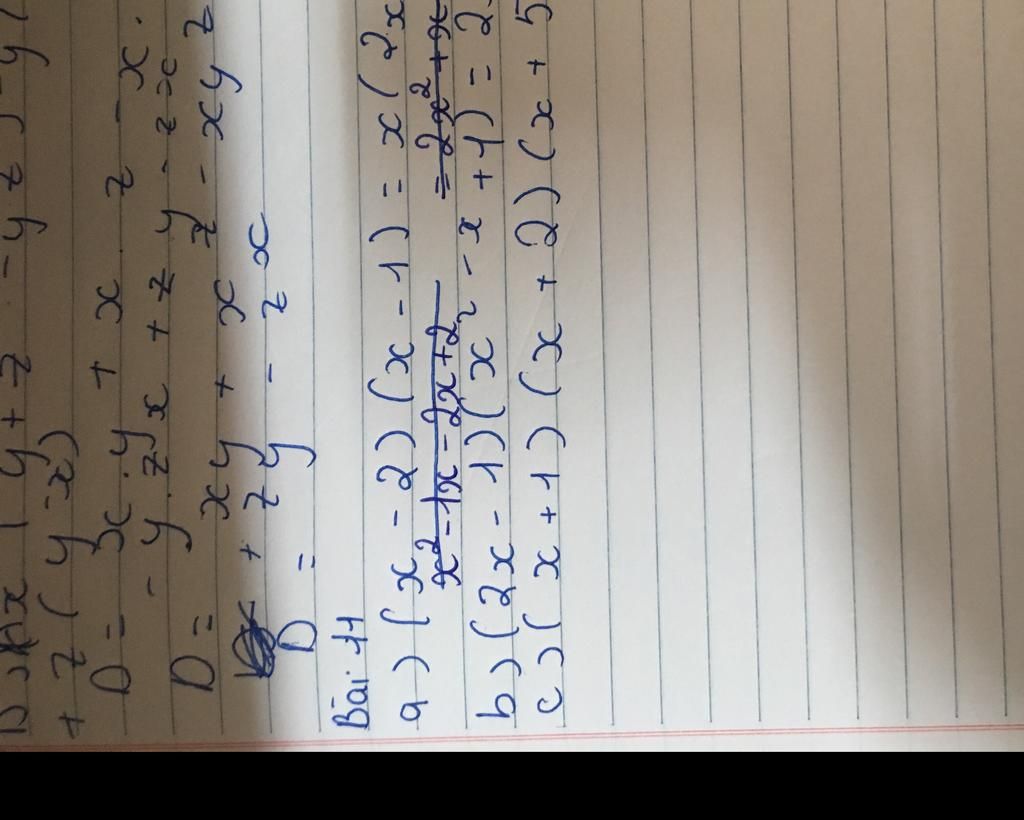 + z ( y - x)
D = x . y + x . z - x .
- y . z x + z y - z x
D = xy + x z - xy z
+ zy - z x
D =
Bài 11
a) (x - 2) (x - 1) = x ( 2x
x² - 1x - 2x + 2 = 2x² + x
b) (2x - 1) (x² - x + 1) = 2
c) ( x + 1) (x + 2) (x + 5